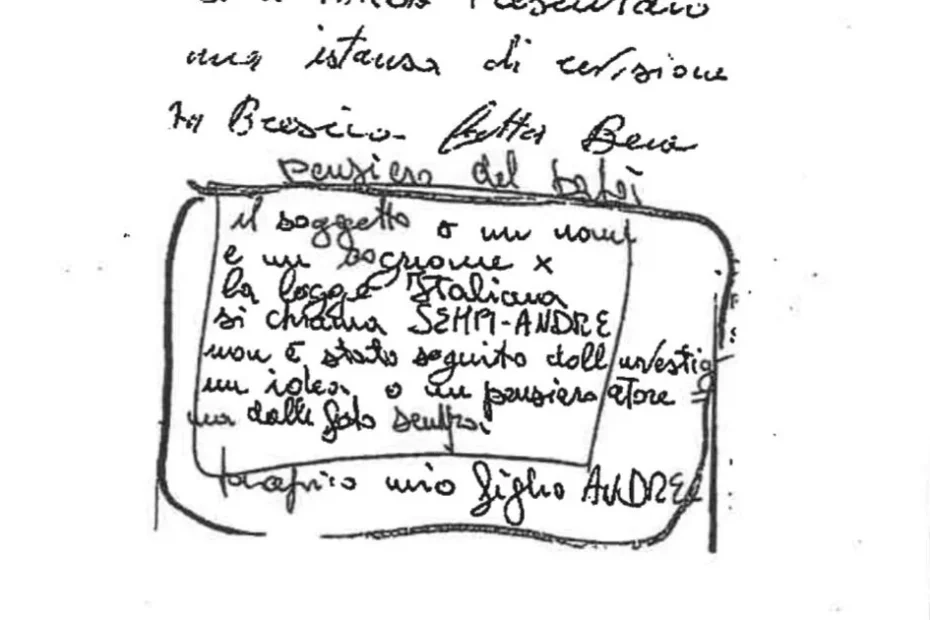 una istansa di revisione
in Brescia fatta Bene
pensiero del papi
il soggetto a un nome
e un cognome x
la legge Italiana
si chiama SEMPI-ANDRE
non è stato seguito dall investig
un idea o un pensiero atore =
ma dalle foto sempra.
proprio mio figlio ANDREA